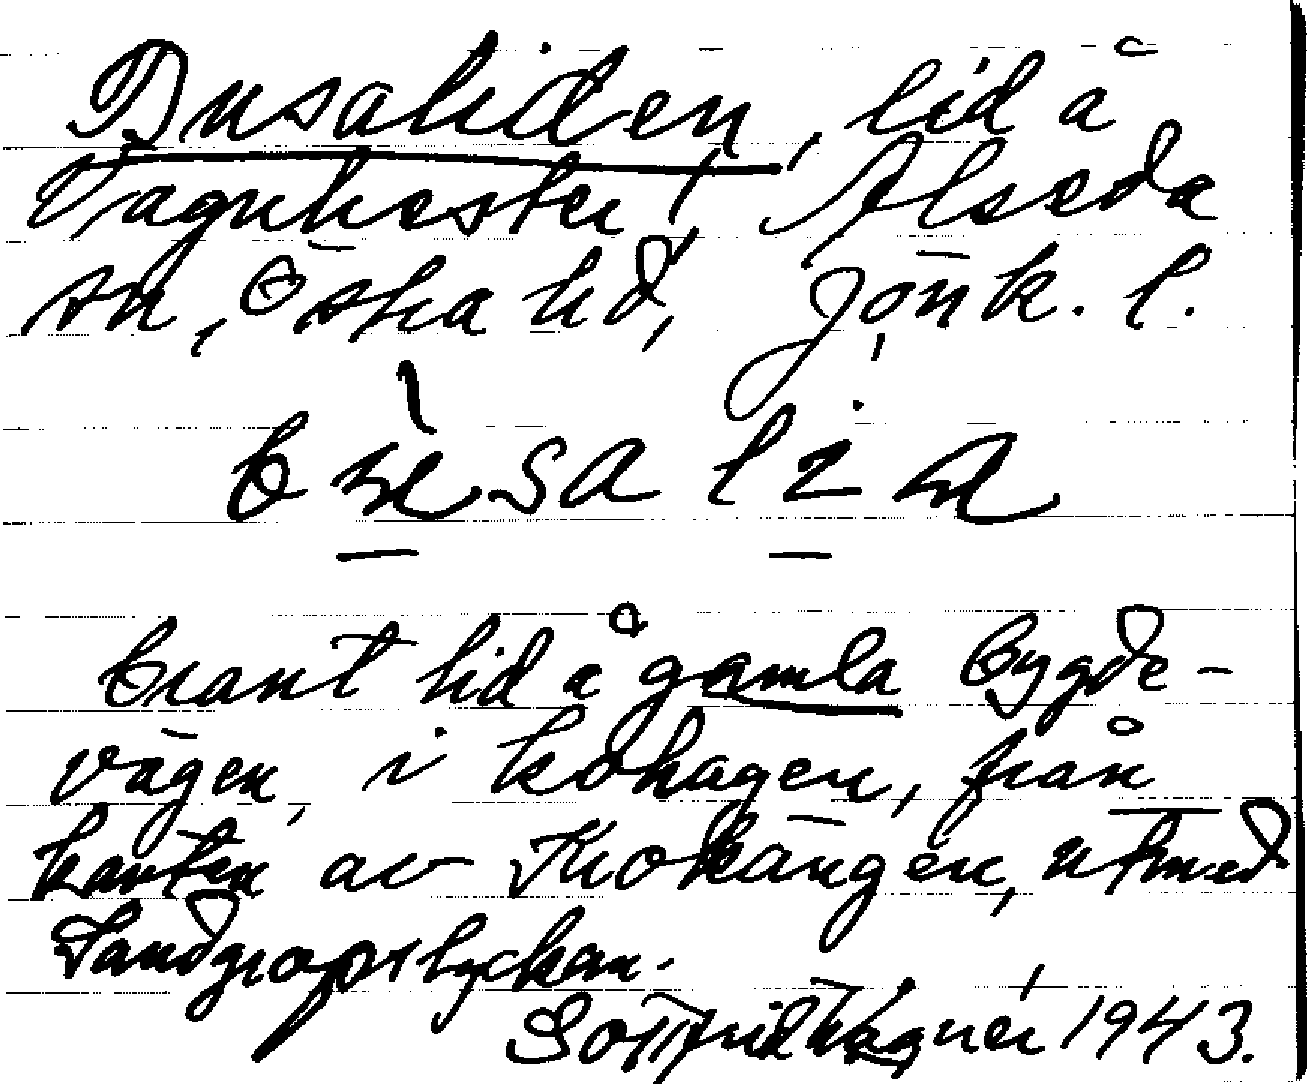 Busaliden, lid å
Vagnhester, Alseda
sn, Östra hd, Jönk. l.
brant lid å gamla bygde-
vägen, i kohagen, från
kanten av Krokängen, utmed
Sandgropslyckan.
Gottfrid Vägnér 1943.